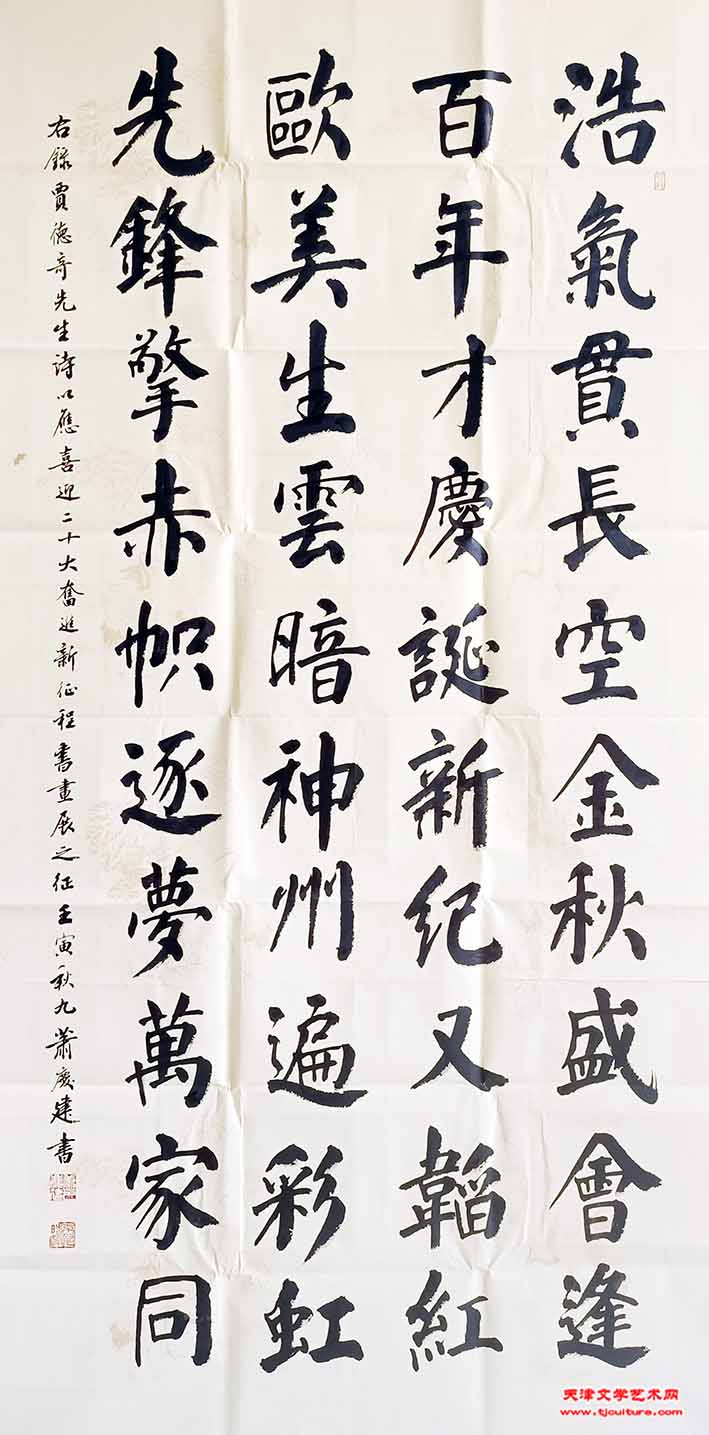 浩氣貫長空金秋盛會逢
百年才慶誕新紀又韜紅
歐美生雲暗神州遍彩虹
先鋒擎赤帜逐夢萬家同
右録賈德奇先生诗以應喜迎二十大奮進新征程書畫展之征壬寅秋九蕭慶建书
天津文学艺术网
www.tjculture.com